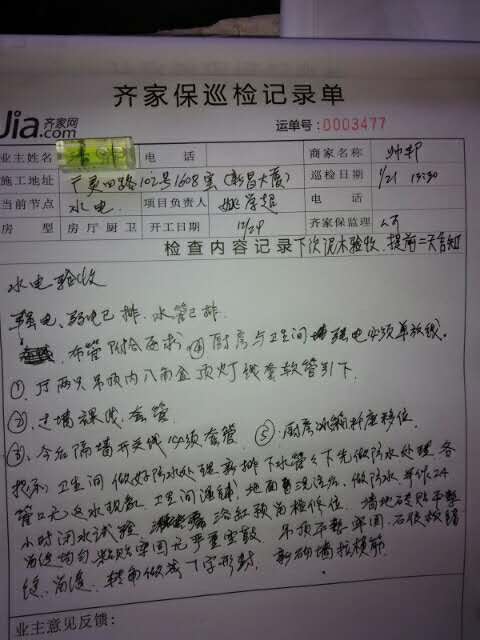 齐家保巡检记录单
Jia 齐家网
.com
运单号：0003477
业主姓名 电 话 商家名称 帅邦
施工地址 广灵四路102号1608室(新昌大厦) 巡检日期 1/21 13:30
当前节点 水电. 项目负责人 姚学超 电 话
房 型 房 厅 厨 卫 开工日期 12/29 齐家保监理
检查内容记录 下次泥木验收.提前二天告知
水电验收
强电、弱电已排.水管已排.
布管附合要求 ④ 厨房与卫生间 强电必须单放线.
①.厅两只吊顶内八角盒顶灯线套软管引下.
②.过墙裸线.套管.
③.今后隔墙开关线 必须套管. ⑤.厨房冰箱插座移位.
卫生间做好防水处理 新排下水管 下先做防水处理 各
管口无返水现象.卫生间 地面 清洗后、做防水.并作24
小时闭水试验. 浴缸预留检修位. 墙地砖贴平整
粘贴牢固无严重空鼓 吊顶平整牢固.石膏板留
缝. 转角做成7字形封. 新砌墙拉横筋
业主意见反馈：